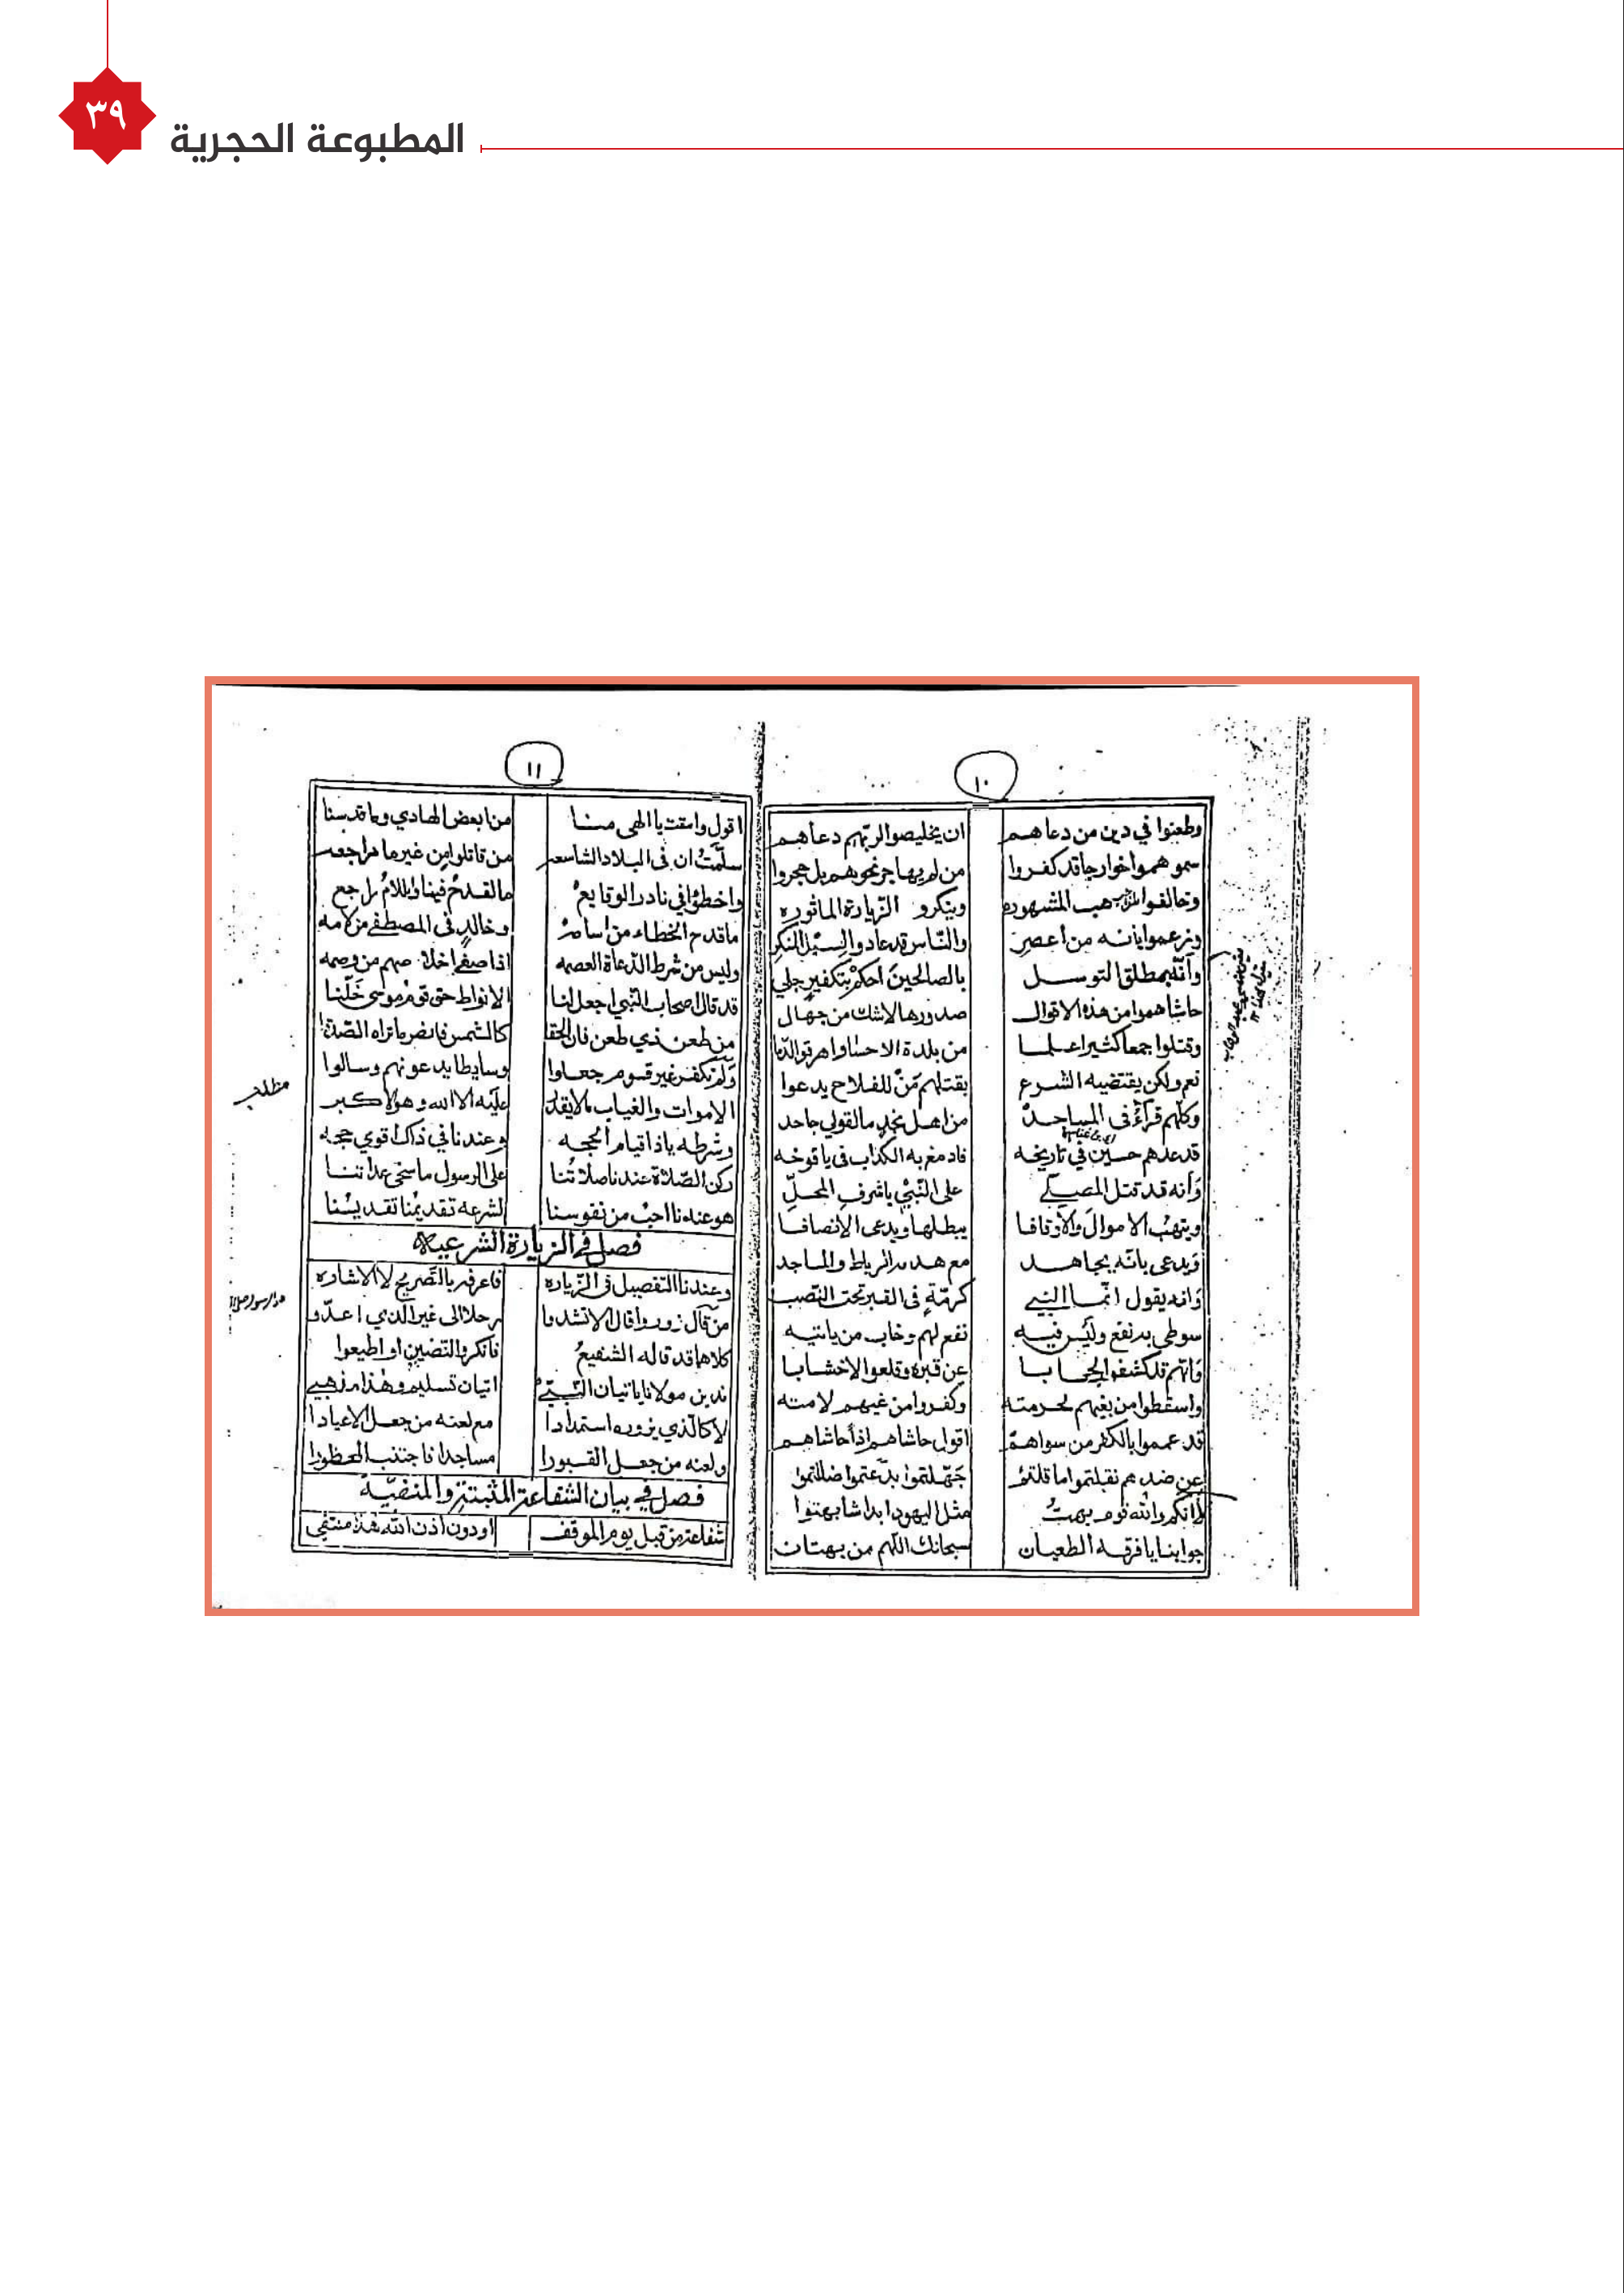 ٣٩
المطبوعة الحجرية
١٠
وطعنوا في دين من دعاهم ان يخليصوا لربهم دعاهم
سموهموا خوارجا قد كفروا من لم يهاجر نحوهم بل هجروا
وخالفوا المذاهب المشهوره وينكرو الزيارة الماثوره
وبزعموا بانه من اعصر والناس قد عادوا لسبل المنكر
وأنه بمطلق التوسل بالصالحين احكم بتكفير جلي
حاشاهموا من هذه الاقوال صدورها لاشك من جهال
وقتلوا جمعا كثيرا علما من بلدة الاحسا واهرقوا الدما
نعم ولكن يقتضيه الشرع بقتلهم من للفلاح يدعوا
وكلهم قرأ في المساجد من اهل نجد ما لقولي جاحد
قد عدهم حسين في تاريخه فادمغ به الكذاب في يافوخه
وأنه قد قتل المصلي على النبي باشرف المحل
وينهب الاموال والاوقافا يبطلها ويدعي الإنصافا
ويدعي بانه يجاهد مع هدمه الرباط والمساجد
وانه يقول انما النبي كرمة في القبر تحت النصب
سوطي به نفع وليس فيه نفع لهم وخاب من ياتيه
وانهم قد كشفوا الحجابا عن قبره وقلعوا الاخشابا
واسقطوا من بغيهم لحرمته وكفروا من غيهم لامته
قد عمموا بالكفر من سواهم اقول حاشاهم اذا حاشاهم
عن ضدهم نقبلتموا ما قلتم جهلتموا بدعتموا ضللتموا
لأنكم والله قوم بهت مثل اليهود ابدا شابهتوا
جوابنا يا فرقه الطعيان سبحانك اللهم من بهتان
١١
اقول وامقت يا الهي منا من ابعض الهادي وما قدسنا
سلمت ان في البلاد الشاسعه من قاتلوا من غير ما مراجعه
واخطؤا في نادر الوقايع ما القدح فينا والملام راجع
ما قدح الخطاء من اسامه وخالد في المصطفى من لامه
وليس من شرط الدعاة العصمه اذا صفى اخلاصهم من وصمه
قد قال اصحاب النبي اجعل لنا الانواط حتى قوم موسى خلنا
من طعن ذي طعن فان الحقا كالشمس فابصر ما تراه الصدقا
ولم نكفر غير قوم جعلوا وسايطا يدعونهم وسالوا
الاموات والغياب مالايقدر عليه الا الله وهو الاكبر
وشرطه ياذا قيام الحجه وعندنا في ذاك اقوي حجه
ركن الصلاة عندنا صلاتنا على الرسول ما سخى عداتنا
هو عندنا احب من نفوسنا لشرعه تقديمنا تقديسنا
فصل في الزيارة الشرعيه
وعندنا التفصيل في الزياره فاعرفه بالتصريح لا الاشاره
من قال زوروا قال لا تشدوا رحلا الى غير الذي اعدوا
كلاهما قد قاله الشفيع فانكروا النصين او اطيعوا
ندين مولانا باتيان النبي اتيان تسليم وهذا مذهبي
لا كالذي يزوره استمدادا مع لعنه من جعل الاعيادا
ولعنه من جعل القبورا مساجدا فاجتنب المحظورا
فصل في بيان الشفاعة المثبتة والمنفية
شفاعة من قبل يوم الموقف او دون اذن الله هذا منتفي
مطلب